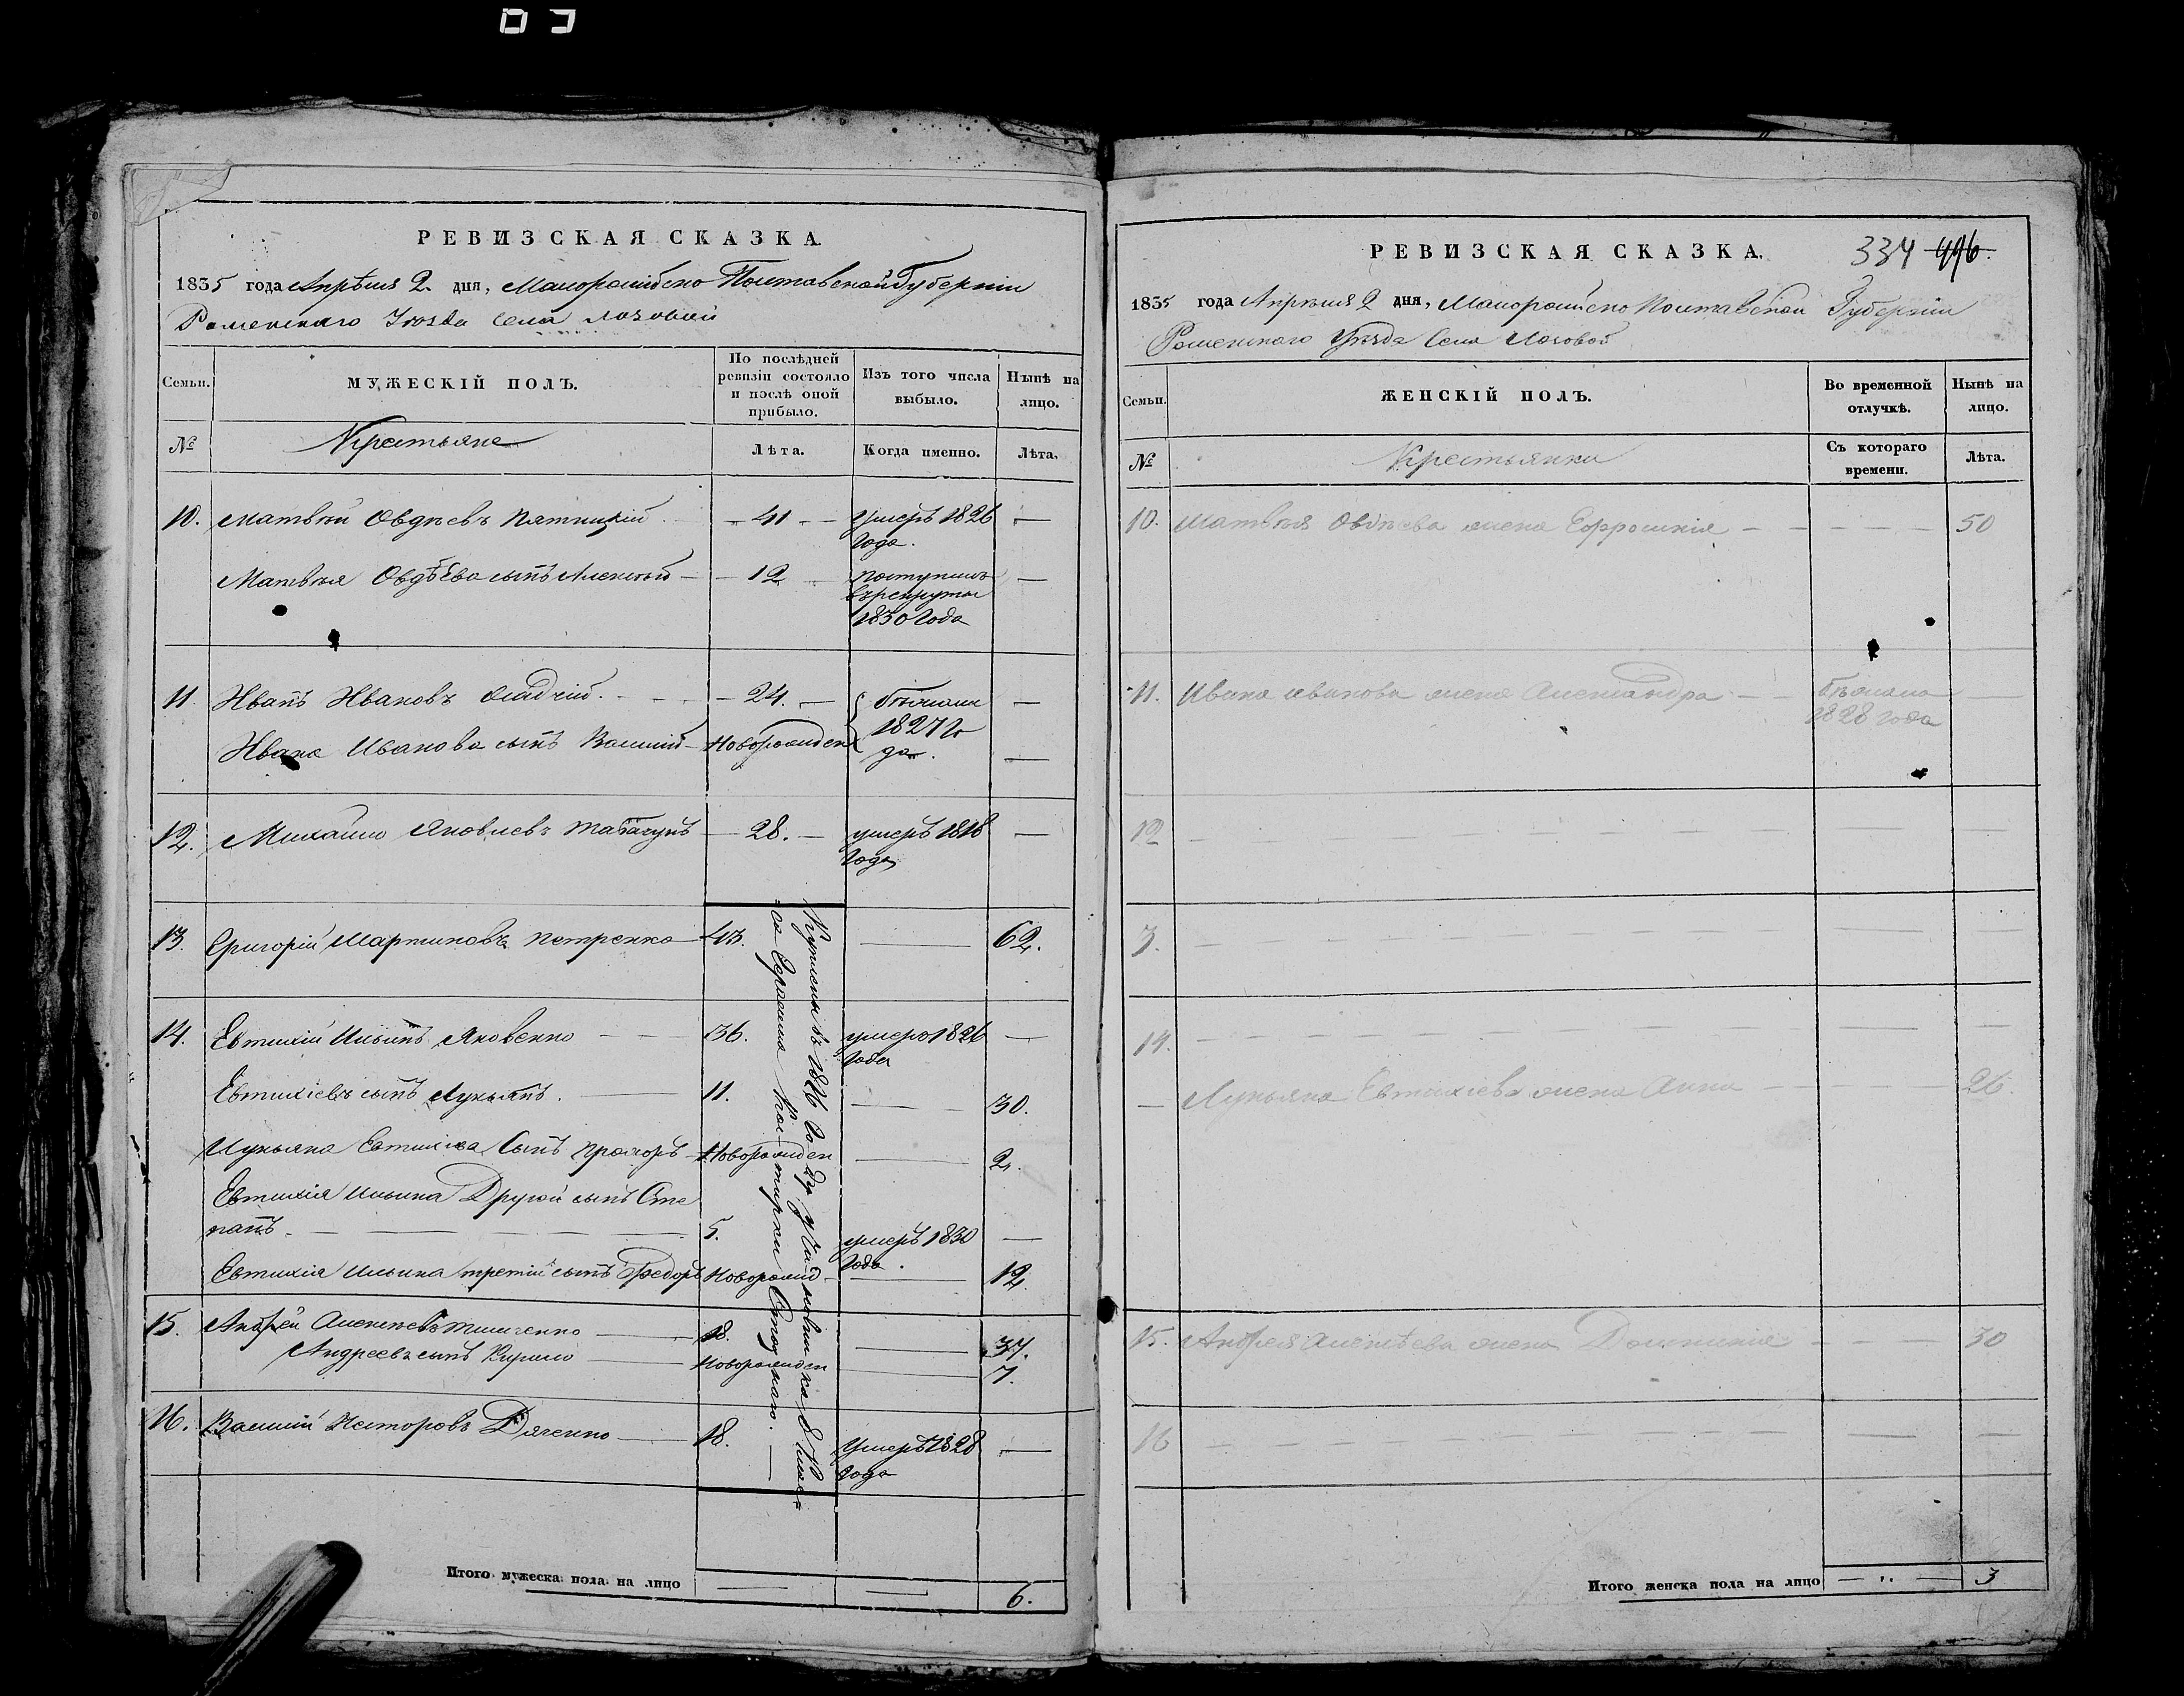 РЕВИЗСКАЯ СКАЗКА.
1835 года Апрѣля 2. дня, Малороссійско Полтавской Губерніи
Роменскаго Уѣзда Села Лозовой
Семьи.
МУЖЕСКІЙ ПОЛЪ.
По послѣдней ревизіи состояло и послѣ оной прибыло.
Изъ того числа выбыло.
Нынѣ на лицо.
№
Крестьяне
Лѣта.
Когда именно.
Лѣта.
10. Матвѣй Овдѣевъ Пятницкій 41 Умеръ 1826 —
года.
Матвѣя Овдѣева сынъ Алексѣй — 12 поступилъ —
въ рекруты
1830 Года
11. Иванъ Ивановъ Осадчій. — 24. — бѣжали —
1827 го
Ивана Иванова сынъ Василій — Новорожден да. —
12. Михайло Яковлевъ — 28. — умеръ 1818 —
года
13. Григорій Мартиновъ Петренко — 43. — 62.
14. Евтихій Ильинъ Яковенко — 36. умеръ 1826 —
года
Евтихіевъ сынъ Лукьянъ. — 11. — 30.
Лукьяна Евтихіева Сынъ Прохоръ — Новорожден — 2.
Евтихія Ильина Другой сынъ Сте
панъ. — 5. умеръ 1830 —
года.
Евтихія Ильина третій сынъ Федоръ Новорожд — 12.
15. Андрей Алексѣевъ — 18. — 37.
Андреевъ сынъ Кирило — Новорожден — 7.
16. Василий Несторовъ Дяченко — 18. Умеръ 1828 —
года
Куплены въ 1826 Году
Итого мужеска пола на лицо — — 6.
РЕВИЗСКАЯ СКАЗКА.
334 496.
1835 года Апрѣля 2 дня, Малороссійско Полтавской Губерніи
Роменскаго Уѣзда Села Лозовой
Семьи.
ЖЕНСКІЙ ПОЛЪ.
Во временной отлучкѣ.
Нынѣ на лицо.
№
Крестьянки
Съ котораго времени.
Лѣта.
10. Матвѣя Овдѣева жена Ефросинія — 50
11. Ивана Иванова жена Александра — бѣжала —
1828 года
12 —
3. —
14. —
— Лукьяна Евтихіева жена Анна — 26.
15. Андрея Алексѣева жена — 30
16 —
Итого женска пола на лицо — „ — 3